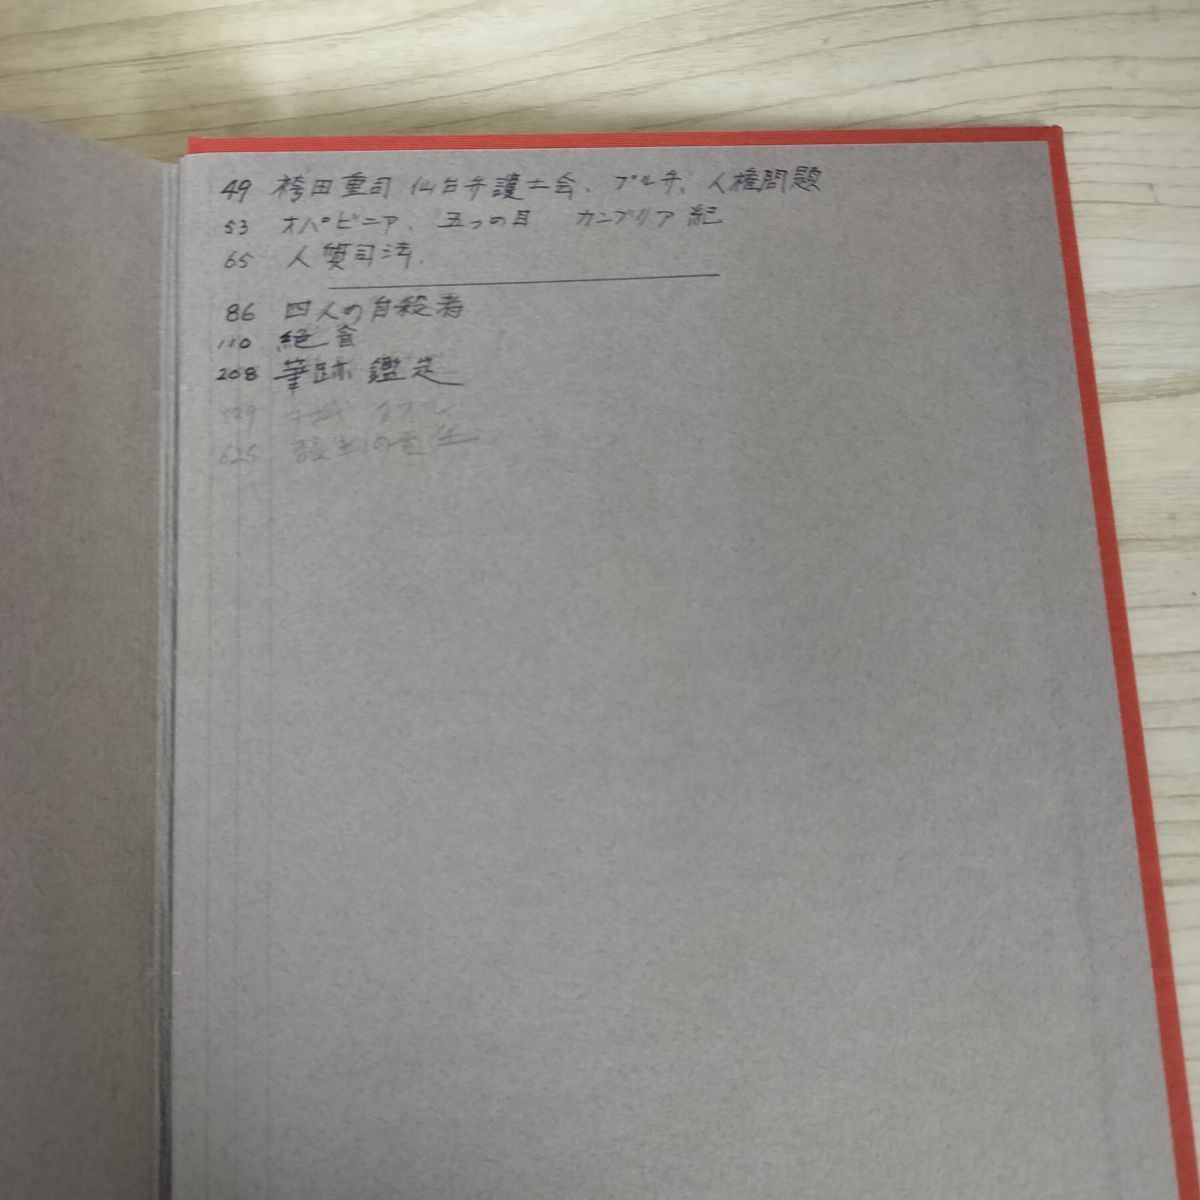 49 袴田重司 仙台弁護士会、ブル弁、人権問題
53 オパビニア、五つの目 カンブリア紀
65 人質司法.
86 四人の自殺者
110 絶食
208 筆跡鑑定
タオル
625